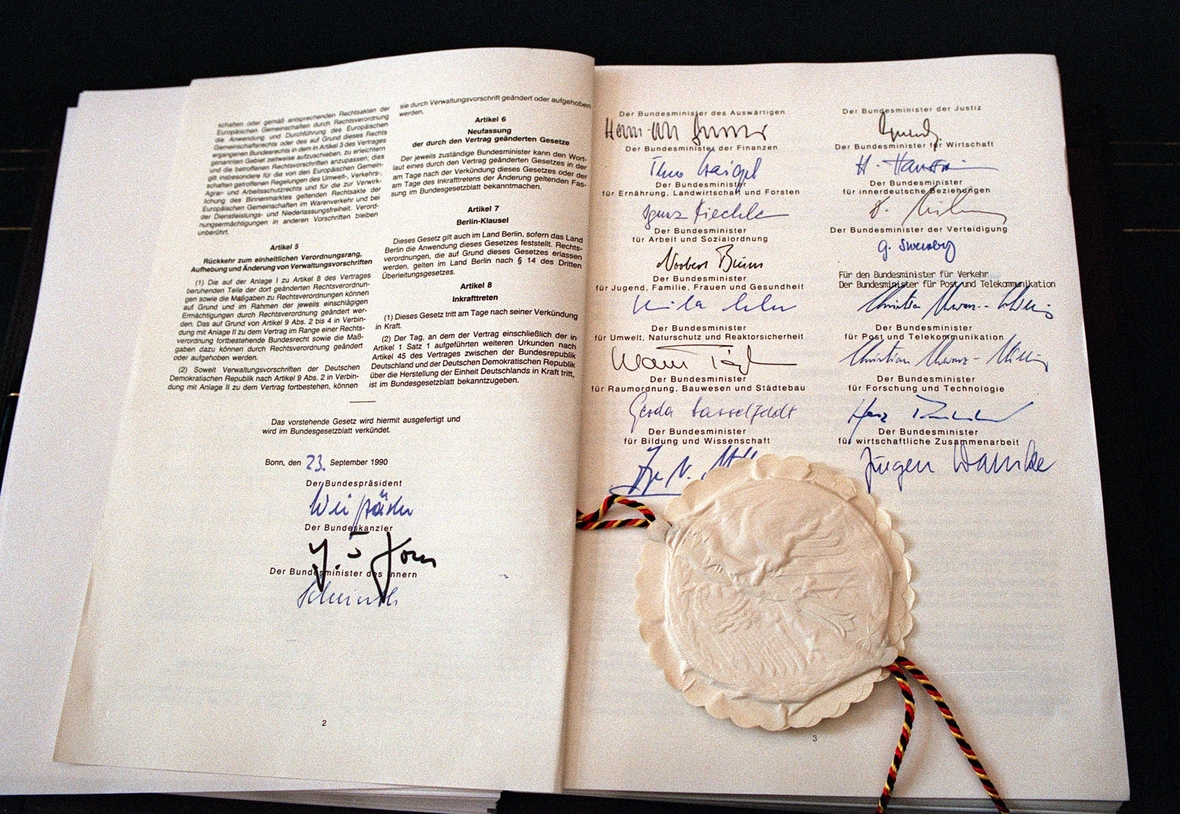 schalten oder gemäß entsprechenden Rechtsakten der
Europäischen Gemeinschaften durch Rechtsverordnung
die Anwendung und Durchführung des Europäischen
Gemeinschaftsrechts oder des auf Grund dieses Rechts
ergangenen Bundesrechts in dem in Artikel 3 des Vertrages
genannten Gebiet zeitweise aufzuschieben, zu erleichtern
und die betroffenen Rechtsvorschriften anzupassen; dies
gilt insbesondere für die von den Europäischen Gemein-
schaften getroffenen Regelungen des Umwelt-, Verkehrs-
Agrar- und Arbeitsschutzrechts und für die zur Verwirk-
lichung des Binnenmarktes geltenden Rechtsakte der
Europäischen Gemeinschaften im Warenverkehr und bei
der Dienstleistungs- und Niederlassungsfreiheit. Verord-
nungsermächtigungen in anderen Vorschriften bleiben
unberührt.
Artikel 5
Rückkehr zum einheitlichen Verordnungsrang,
Aufhebung und Änderung von Verwaltungsvorschriften
(1) Die auf der Anlage I zu Artikel 8 des Vertrages
beruhenden Teile der dort geänderten Rechtsverordnun-
gen sowie die Maßgaben zu Rechtsverordnungen können
auf Grund und im Rahmen der jeweils einschlägigen
Ermächtigungen durch Rechtsverordnung geändert wer-
den. Das auf Grund von Artikel 9 Abs. 2 bis 4 in Verbin-
dung mit Anlage II zu dem Vertrag im Range einer Rechts-
verordnung fortbestehende Bundesrecht sowie die Maß-
gaben dazu können durch Rechtsverordnung geändert
oder aufgehoben werden.
(2) Soweit Verwaltungsvorschriften der Deutschen
Demokratischen Republik nach Artikel 9 Abs. 2 in Verbin-
dung mit Anlage II zu dem Vertrag fortbestehen, können
sie durch Verwaltungsvorschrift geändert oder aufgehoben
werden.
Artikel 6
Neufassung
der durch den Vertrag geänderten Gesetze
Der jeweils zuständige Bundesminister kann den Wort-
laut eines durch den Vertrag geänderten Gesetzes in der
am Tage nach der Verkündung dieses Gesetzes oder der
am Tage des Inkrafttretens der Änderung geltenden Fas-
sung im Bundesgesetzblatt bekanntmachen.
Artikel 7
Berlin-Klausel
Dieses Gesetz gilt auch im Land Berlin, sofern das Land
Berlin die Anwendung dieses Gesetzes feststellt. Rechts-
verordnungen, die auf Grund dieses Gesetzes erlassen
werden, gelten im Land Berlin nach § 14 des Dritten
Überleitungsgesetzes.
Artikel 8
Inkrafttreten
(1) Dieses Gesetz tritt am Tage nach seiner Verkündung
in Kraft.
(2) Der Tag, an dem der Vertrag einschließlich der in
Artikel 1 Satz 1 aufgeführten weiteren Urkunden nach
Artikel 45 des Vertrages zwischen der Bundesrepublik
Deutschland und der Deutschen Demokratischen Republik
über die Herstellung der Einheit Deutschlands in Kraft tritt,
ist im Bundesgesetzblatt bekanntzugeben.
Das vorstehende Gesetz wird hiermit ausgefertigt und
wird im Bundesgesetzblatt verkündet.
Bonn, den 23. September 1990
Der Bundespräsident
Der Bundeskanzler
Der Bundesminister des Innern
2
Der Bundesminister des Auswärtigen
Der Bundesminister der Finanzen
Theo Waigel
Der Bundesminister
für Ernährung, Landwirtschaft und Forsten
Ignaz Kiechle
Der Bundesminister
für Arbeit und Sozialordnung
Norbert Blüm
Der Bundesminister
für Jugend, Familie, Frauen und Gesundheit
Der Bundesminister
für Umwelt, Naturschutz und Reaktorsicherheit
Der Bundesminister
für Raumordnung, Bauwesen und Städtebau
Gerda Hasselfeldt
Der Bundesminister
für Bildung und Wissenschaft
Der Bundesminister der Justiz
Der Bundesminister für Wirtschaft
Der Bundesminister
für innerdeutsche Beziehungen
Der Bundesminister der Verteidigung
Für den Bundesminister für Verkehr
Der Bundesminister für Post und Telekommunikation
Der Bundesminister
für Post und Telekommunikation
Der Bundesminister
für Forschung und Technologie
Der Bundesminister
für wirtschaftliche Zusammenarbeit
Jürgen Warnke
3